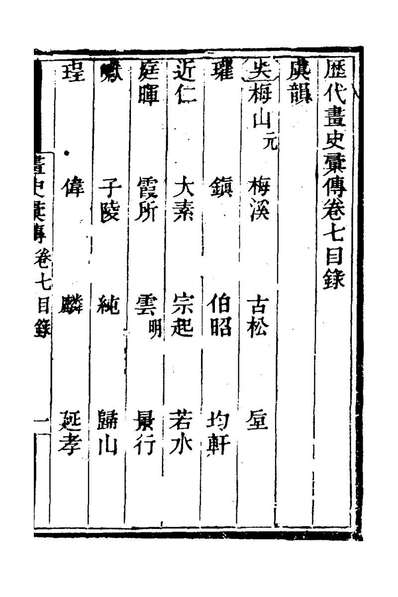 歷代畫史彙傳卷七目錄
虞韻
吳梅山元 梅溪 古松 垕
瓘 鎮 伯昭 均軒
近仁 大素 宗起 若水
庭暉 霞所 雲明 景行
子陵 純 歸山
珵 偉 麟 延孝
畫史彙傳 卷七目錄 一